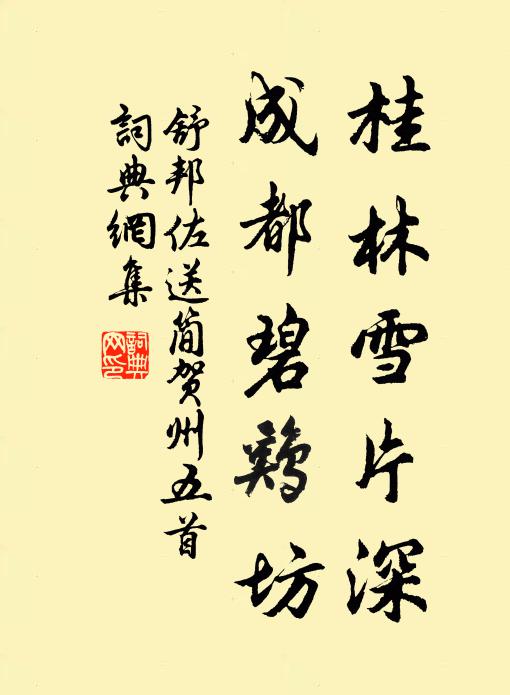 桂林雪片深
成都碧鷄坊
舒邦佐送简贺州五首
詞典網集
詞典网印